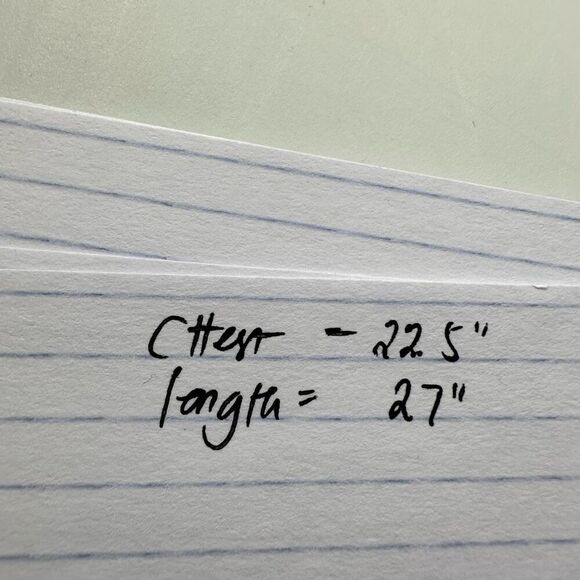 CHest - 22.5"
length = 27"